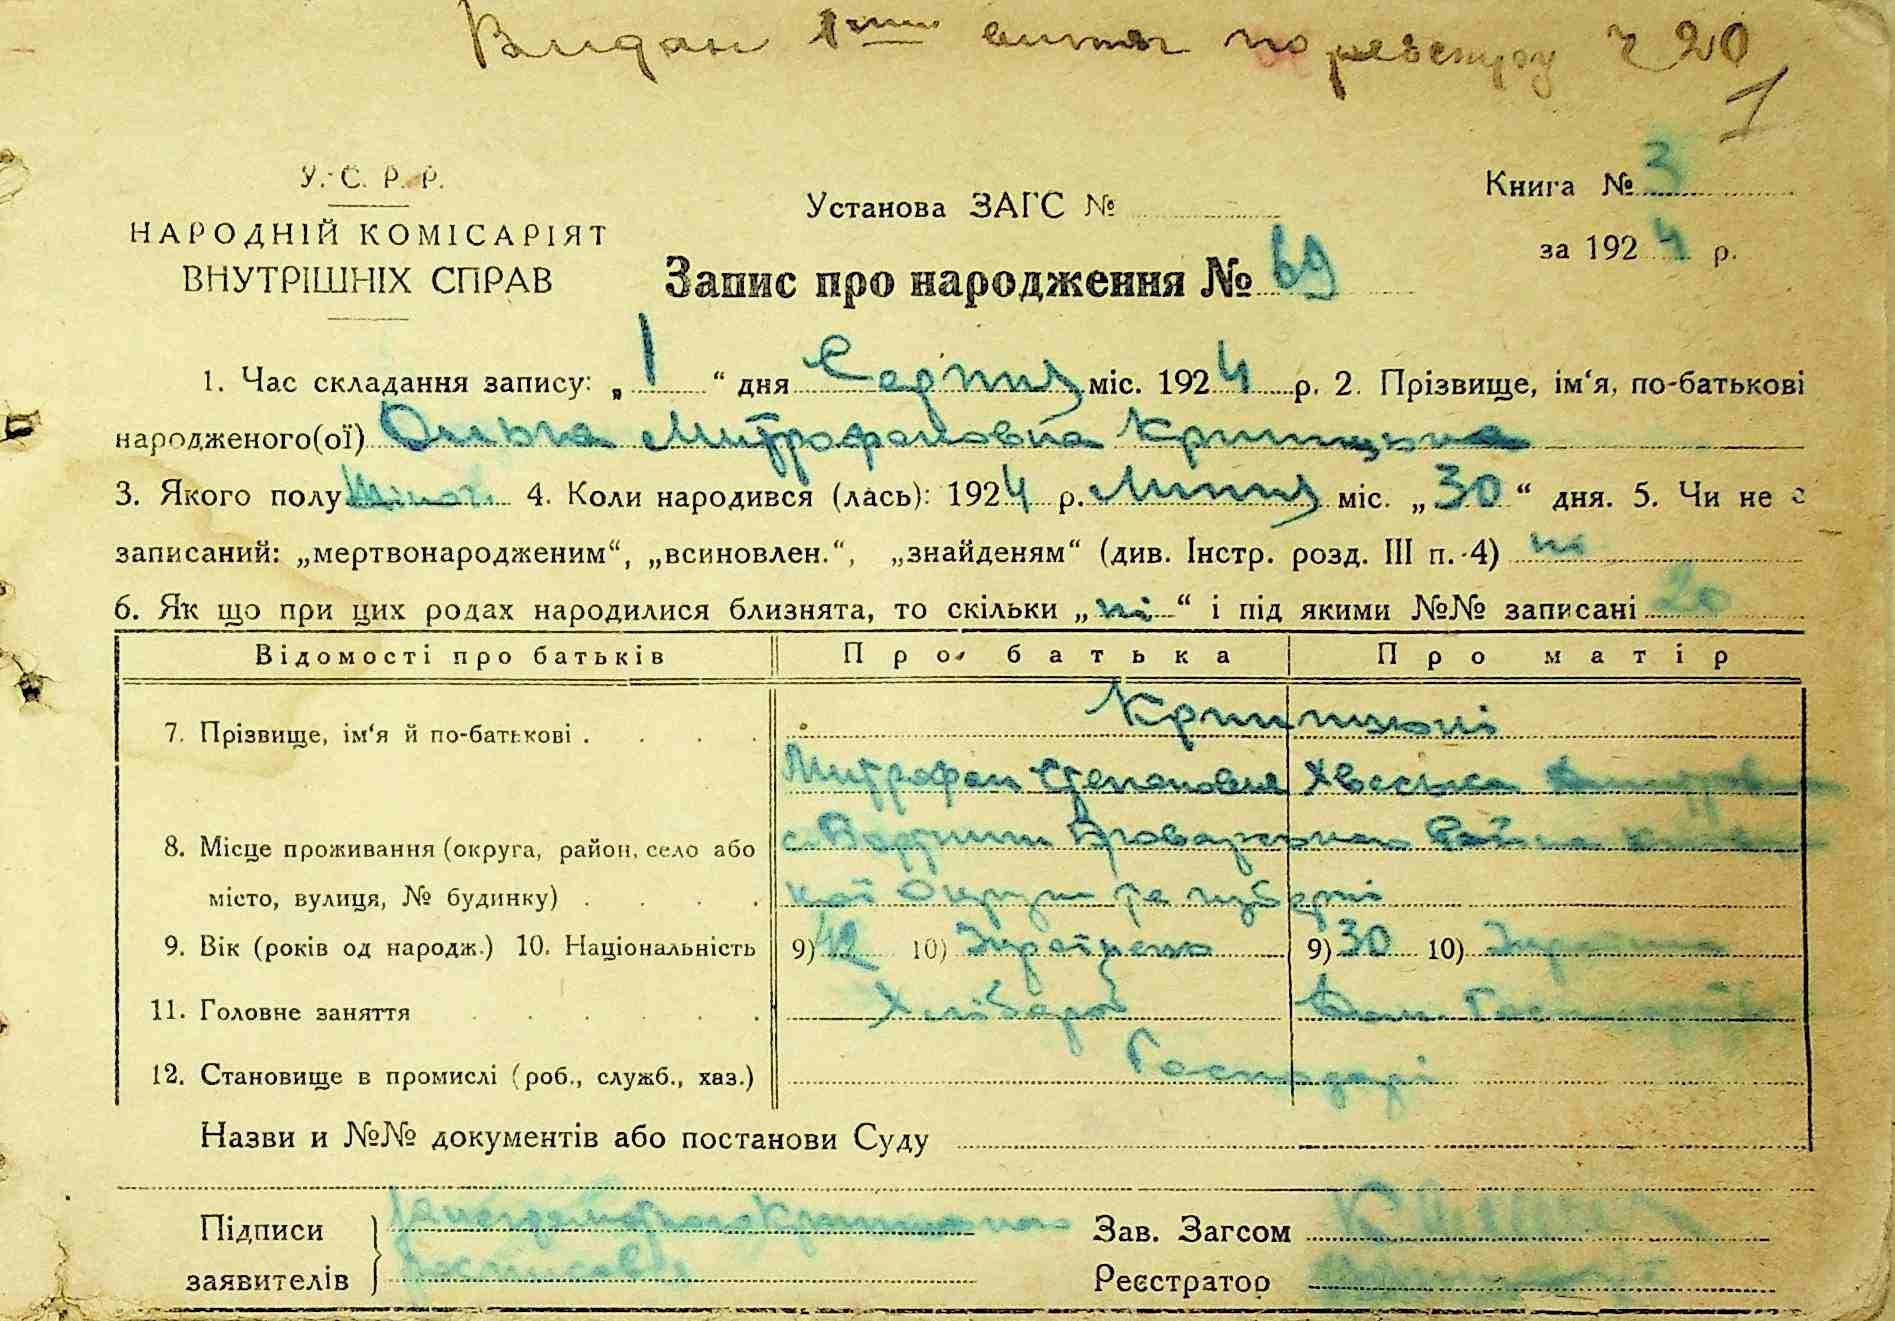 Видан 1ший витяг по реєстру ч 20
1
У. С. Р. Р.
НАРОДНІЙ КОМІСАРІЯТ
ВНУТРІШНІХ СПРАВ
Установа ЗАГС №
Книга № 3
за 1924 р.
Запис про народження № 69
1. Час складання запису: „1“ дня Серпня міс. 1924 р. 2. Прізвище, ім‘я, по-батькові
народженого(ої) Ольга Митрофановна
3. Якого полу жіноч. 4. Коли народився (лась): 1924 р. Липня міс. „30“ дня. 5. Чи не є
записаний: „мертвонародженим“, „всиновлен.“, „знайденям“ (див. Інстр. розд. III п. 4) ні
6. Як що при цих родах народилися близнята, то скільки „ні“ і під якими №№ записані
Відомості про батьків Про батька Про матір
7. Прізвище, ім‘я й по-батькові
Митрофан Степанович Хвеська
8. Місце проживання (округа, район, село або с. Броварського Району
місто, вулиця, № будинку) Округи та губерні
9. Вік (років од народж.) 10. Національність 9) 42 10) Українець 9) 30 10) Українка
11. Головне заняття Хлібороб Дом. Господар
12. Становище в промислі (роб., служб., хаз.) Господарі
Назви и №№ документів або постанови Суду
Підписи
заявителів
Зав. Загсом
Реєстратор